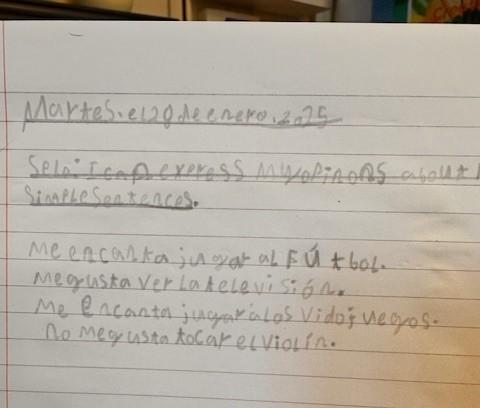 Martes.el 20 de enero.2025
Selo: I can express my opinons about
simple sentences.
Me encanta jugar al FÚtbol.
Me gusta ver la televisión.
Me encanta jugar a los vidojuegos.
no me gusta tocar el violín.